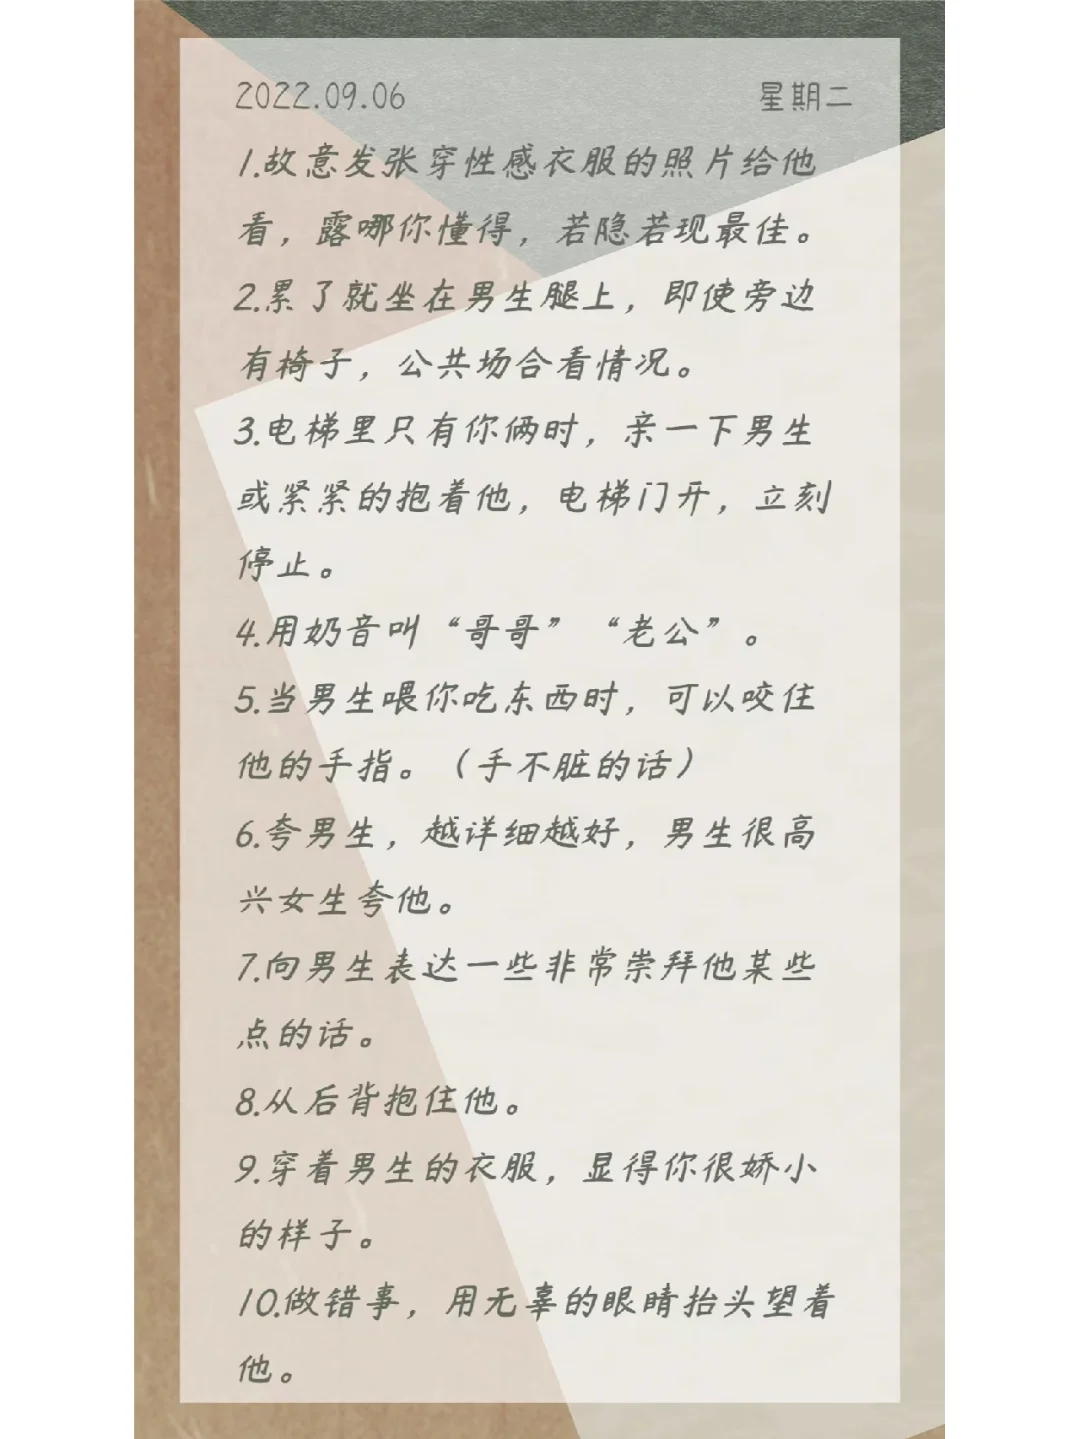 2022.09.06 星期二
1.故意发张穿性感衣服的照片给他
看，露哪你懂得，若隐若现最佳。
2.累了就坐在男生腿上，即使旁边
有椅子，公共场合看情况。
3.电梯里只有你俩时，亲一下男生
或紧紧的抱着他，电梯门开，立刻
停止。
4.用奶音叫“哥哥”“老公”。
5.当男生喂你吃东西时，可以咬住
他的手指。（手不脏的话）
6.夸男生，越详细越好，男生很高
兴女生夸他。
7.向男生表达一些非常崇拜他某些
点的话。
8.从后背抱住他。
9.穿着男生的衣服，显得你很娇小
的样子。
10.做错事，用无辜的眼睛抬头望着
他。